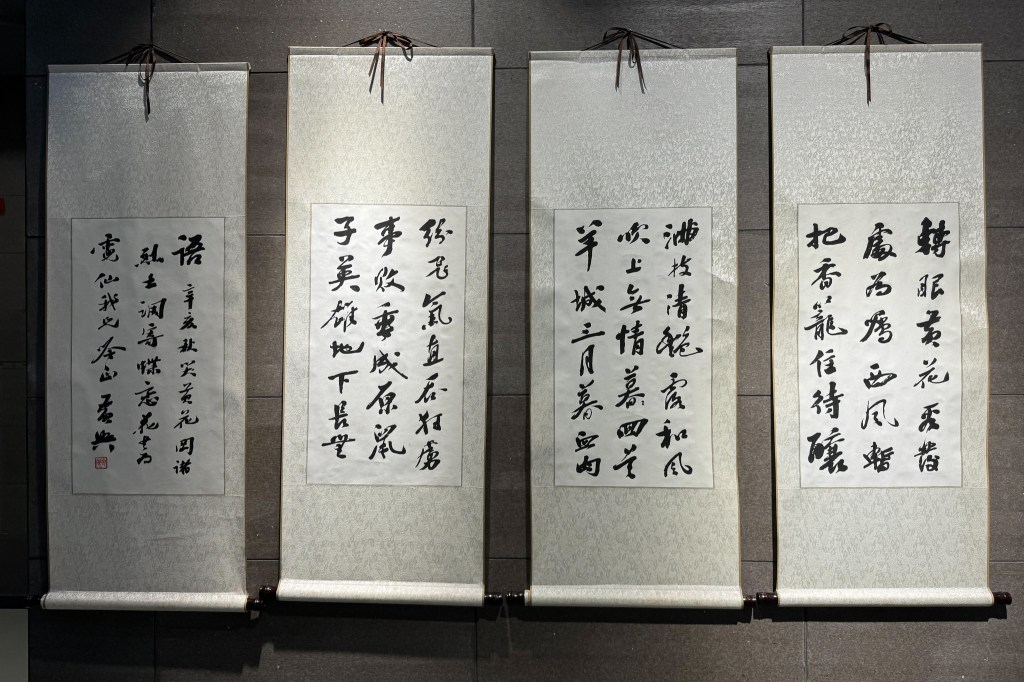 轉眼黃花看發
處為囑西風暫
把香籠住待釀
滿枝清艷露和風
吹上無情墓回首
羊城三月暮血肉
紛飛氣直吞狂虜
事敗垂成原鼠
子英雄地下長無
語 辛亥秋哭黃花岡諸
烈士調寄蝶戀花書為
仙我兄正 黃興